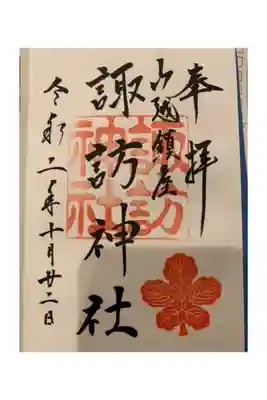 奉拝
山越鎮座
諏訪神社
諏訪
神社
令和二年十月廿二日